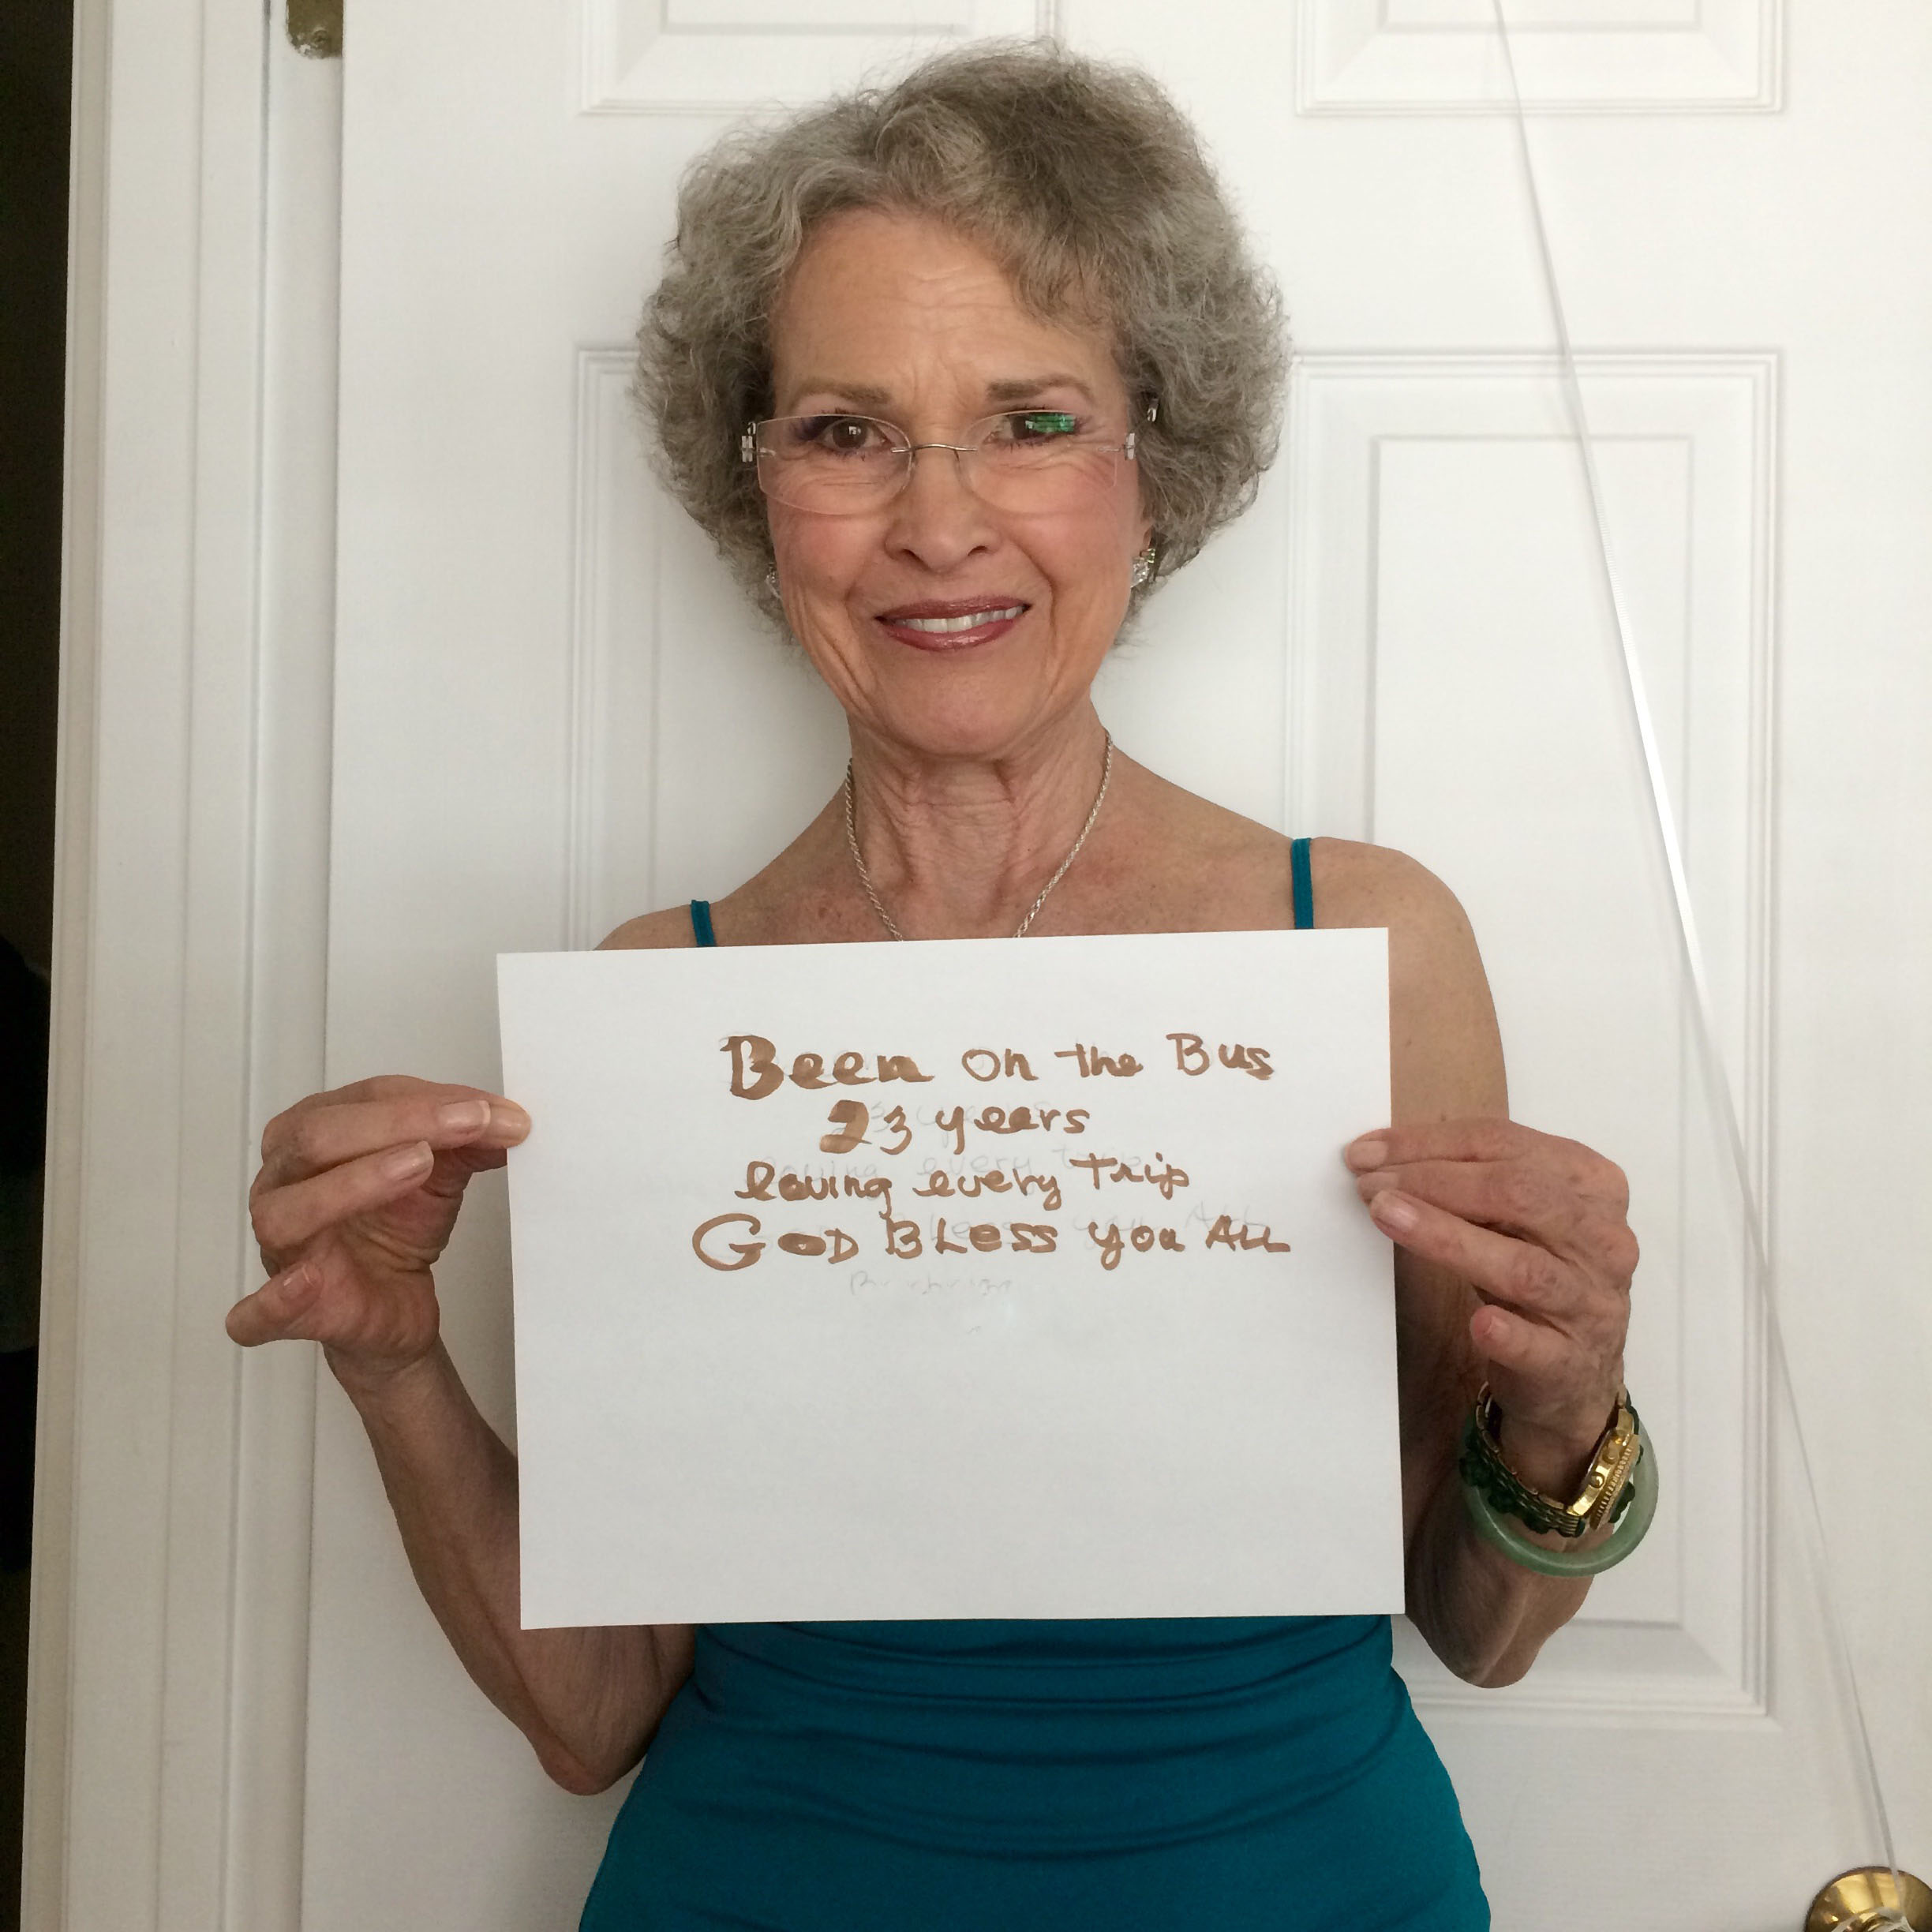 Been on the Bus
23 years
loving every trip
GOD BLess you ALL